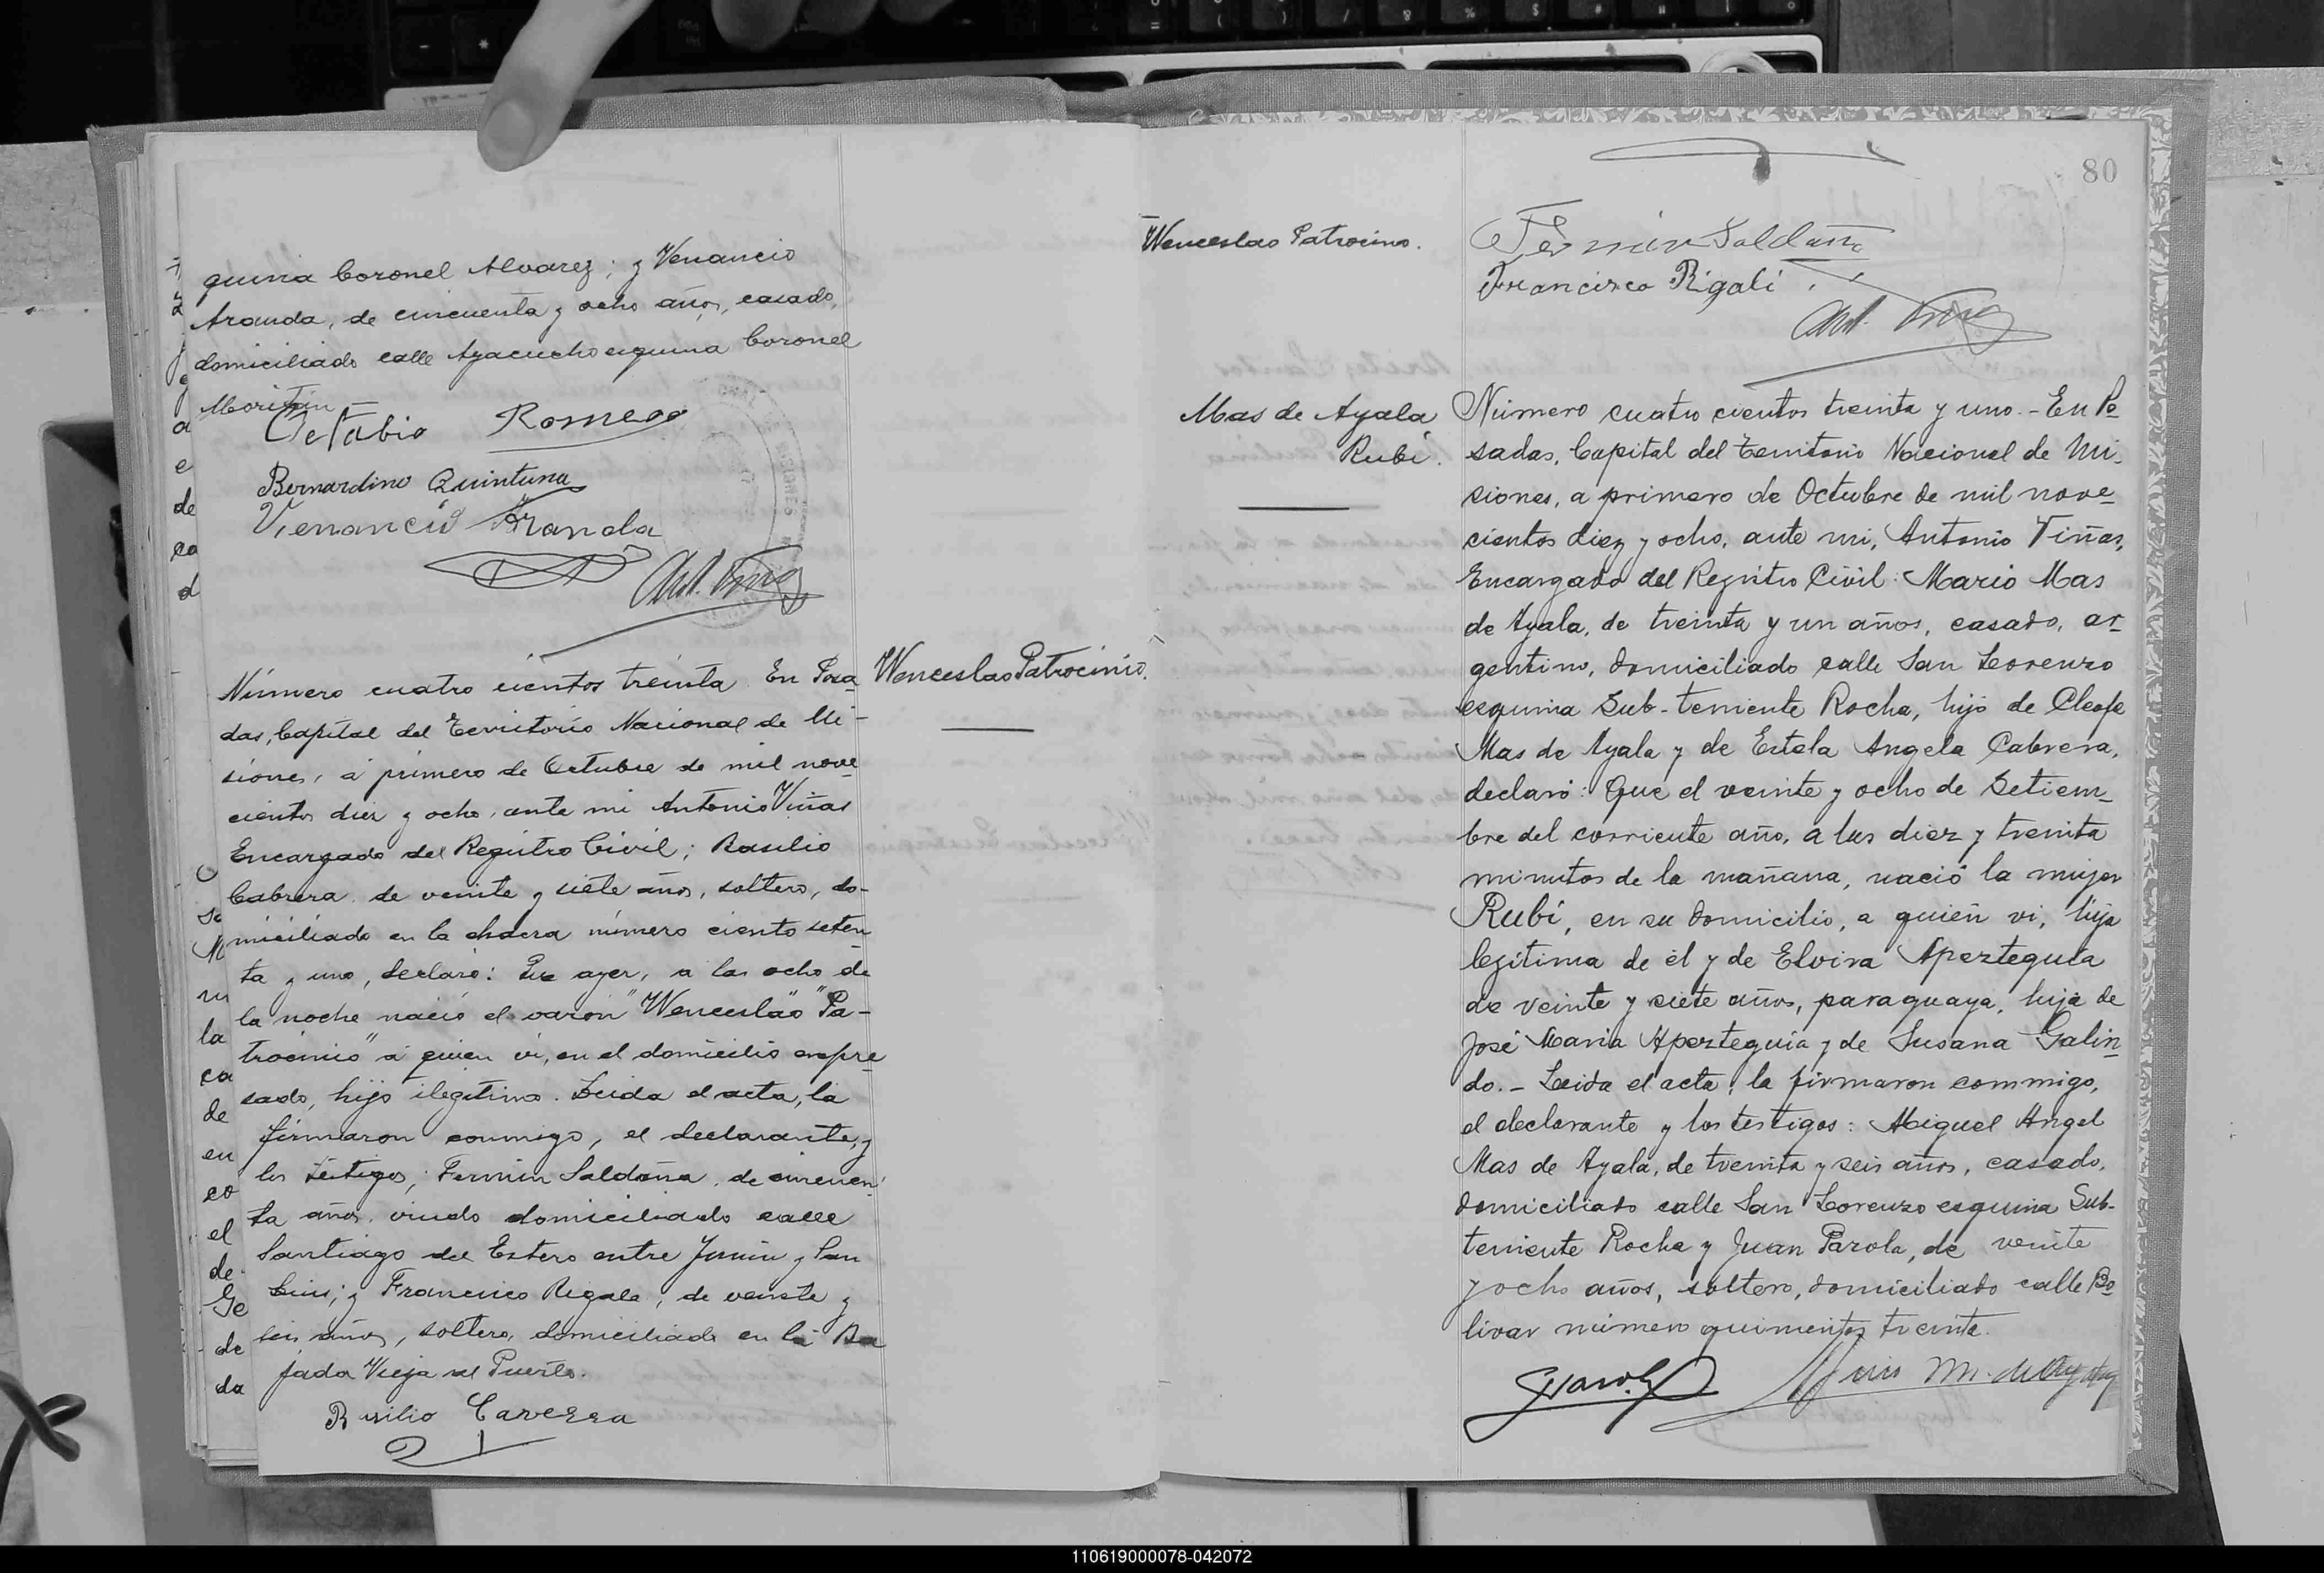 quina Coronel Alvarez; y Venancio
Aranda, de cincuenta y ocho años, casado,
domiciliado calle Ayacucho esquina Coronel
Octabio Romero
Bernardino Quintana
Venancio Aranda
Número cuatro cientos treinta. En Posa
das, Capital del Territorio Nacional de Mi-
siones, á primero de Octubre de mil nove
cientos diez y ocho, ante mi Antonio Viñas
Encargado del Registro Civil; Basilio
Cabrera, de veinte y siete años, soltero, do-
miciliado en la chacra número ciento seten
ta y uno, declaró: Que ayer, a las ocho de
la noche nació el varón "Wenceslao" "Pa-
trocinio" á quien vi, en el domicilio expre
sado, hijo ilegitimo. Leida el acta, la
firmaron conmigo, el declarante, y
los testigos; Fermin Saldaña, de cincuen
ta años, viudo domiciliado calle
Santiago del Estero entre Junin y San
Luis; y Francisco Rigale, de veinte y
seis años, soltero, domiciliado en la Ba
jada Vieja del Puerto.
Basilio Caversa
Wenceslao Patrocinio.
80
Wenceslao Patrocino.
Fermin Saldaña
Francisco Rigali.
Mas de Ayala
Rubí.
Número cuatro cientos treinta y uno.- En Po
sadas, Capital del Territorio Nacional de Mi-
siones, a primero de Octubre de mil nove
cientos diez y ocho, ante mi, Antonio Viñas,
Encargado del Registro Civil: Mario Mas
de Ayala, de treinta y un años, casado, ar
gentino, domiciliado calle San Lorenzo
esquina Sub-teniente Rocha, hijo de Cleofe
Mas de Ayala y de Estela Angela Cabrera,
declaró: Que el veinte y ocho de Setiem-
bre del corriente año, a las diez y treinta
minutos de la mañana, nació la mujer
Rubí, en su domicilio, a quién vi, hija
legítima de él y de Elvira Aperteguia
de veinte y siete años, paraguaya, hija de
José Maria Aperteguia y de Susana Galin
do.- Leida el acta, la firmaron commigo,
el declarante y los testigos: Miguel Angel
Mas de Ayala, de treinta y seis años, casado,
domiciliado calle San Lorenzo esquina Sub-
teniente Rocha y Juan Parola, de veinte
y ocho años, soltero, domiciliado calle Bo
livar número quinientos treinta.
110619000078-042072